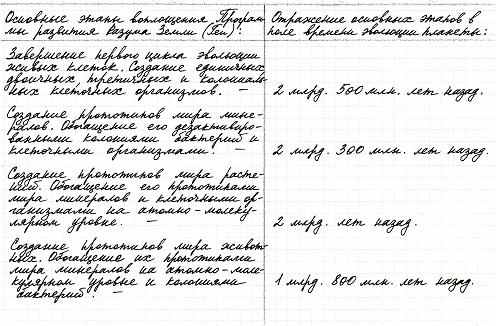 Основные этапы воплощения Програм-
мы развития Разума Земли (Геи):
Отражение основных этапов в
поле времени эволюции планеты:
Завершение первого цикла эволюции
живых клеток. Создание единичных
двоичных, третичных и колониаль-
ных клеточных организмов. —
2 млрд. 500 млн. лет назад.
Создание прототипов мира мине-
ралов. Обогащение его дезактивиро-
ванными колониями бактерий и
клеточными организмами. —
2 млрд. 300 млн. лет назад.
Создание прототипов мира расте-
ний. Обогащение его прототипами
мира минералов и клеточными ор-
ганизмами на атомно-молеку-
лярном уровне. —
2 млрд. лет назад.
Создание прототипов мира живот-
ных. Обогащение их прототипами
мира минералов на атомно-моле-
кулярном уровне и колониями
бактерий. —
1 млрд. 800 млн. лет назад.